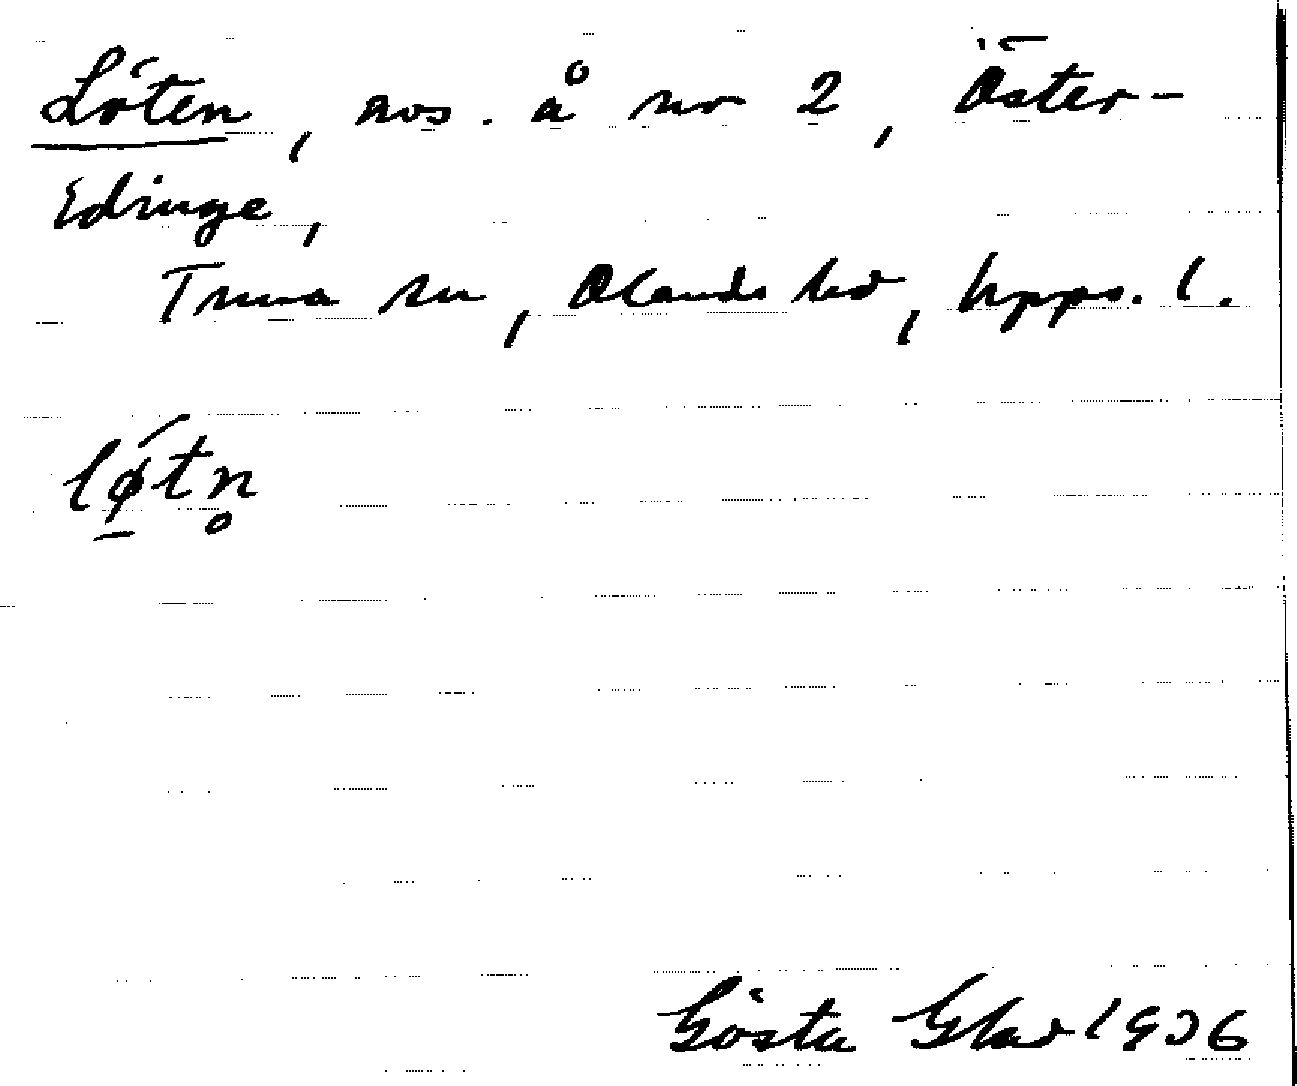 Löten, avs. å nr 2, Öster-
Edinge,
Tuna sn, Olands hd, Upps. l.
lǿtn̥
Gösta Glad 1936